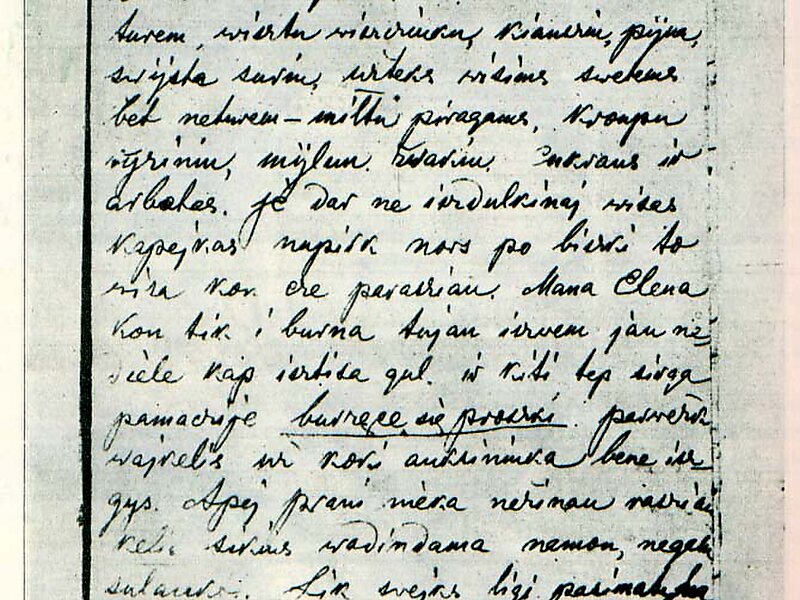 turem, wisztu wiszcziuku, kiauszin, pijna,
swijsta surin, užteks wisims swetems
bet neturem – miltu piragams, kroupu
ryziniu, mylun. Žwakiu. Cukraus ir
arbatas. Jě dar ne iszdulkinaj wisas
kapejkas nupirk nors po biski to
wisa kou cze paraszian. Mana Elena
kon tik i burna tujau iszwem jau ne
diele kap isztisa gul. ir kiti tep sirga
pamaczije burzące się proszki. parwežk
wajkelis už koki auksiniuka bene isz
gys. Apej prani nieka nežinau raszia
kelis sikius wadindama namon, negali
sulaukt. Lik swejks ligi pasimatyma